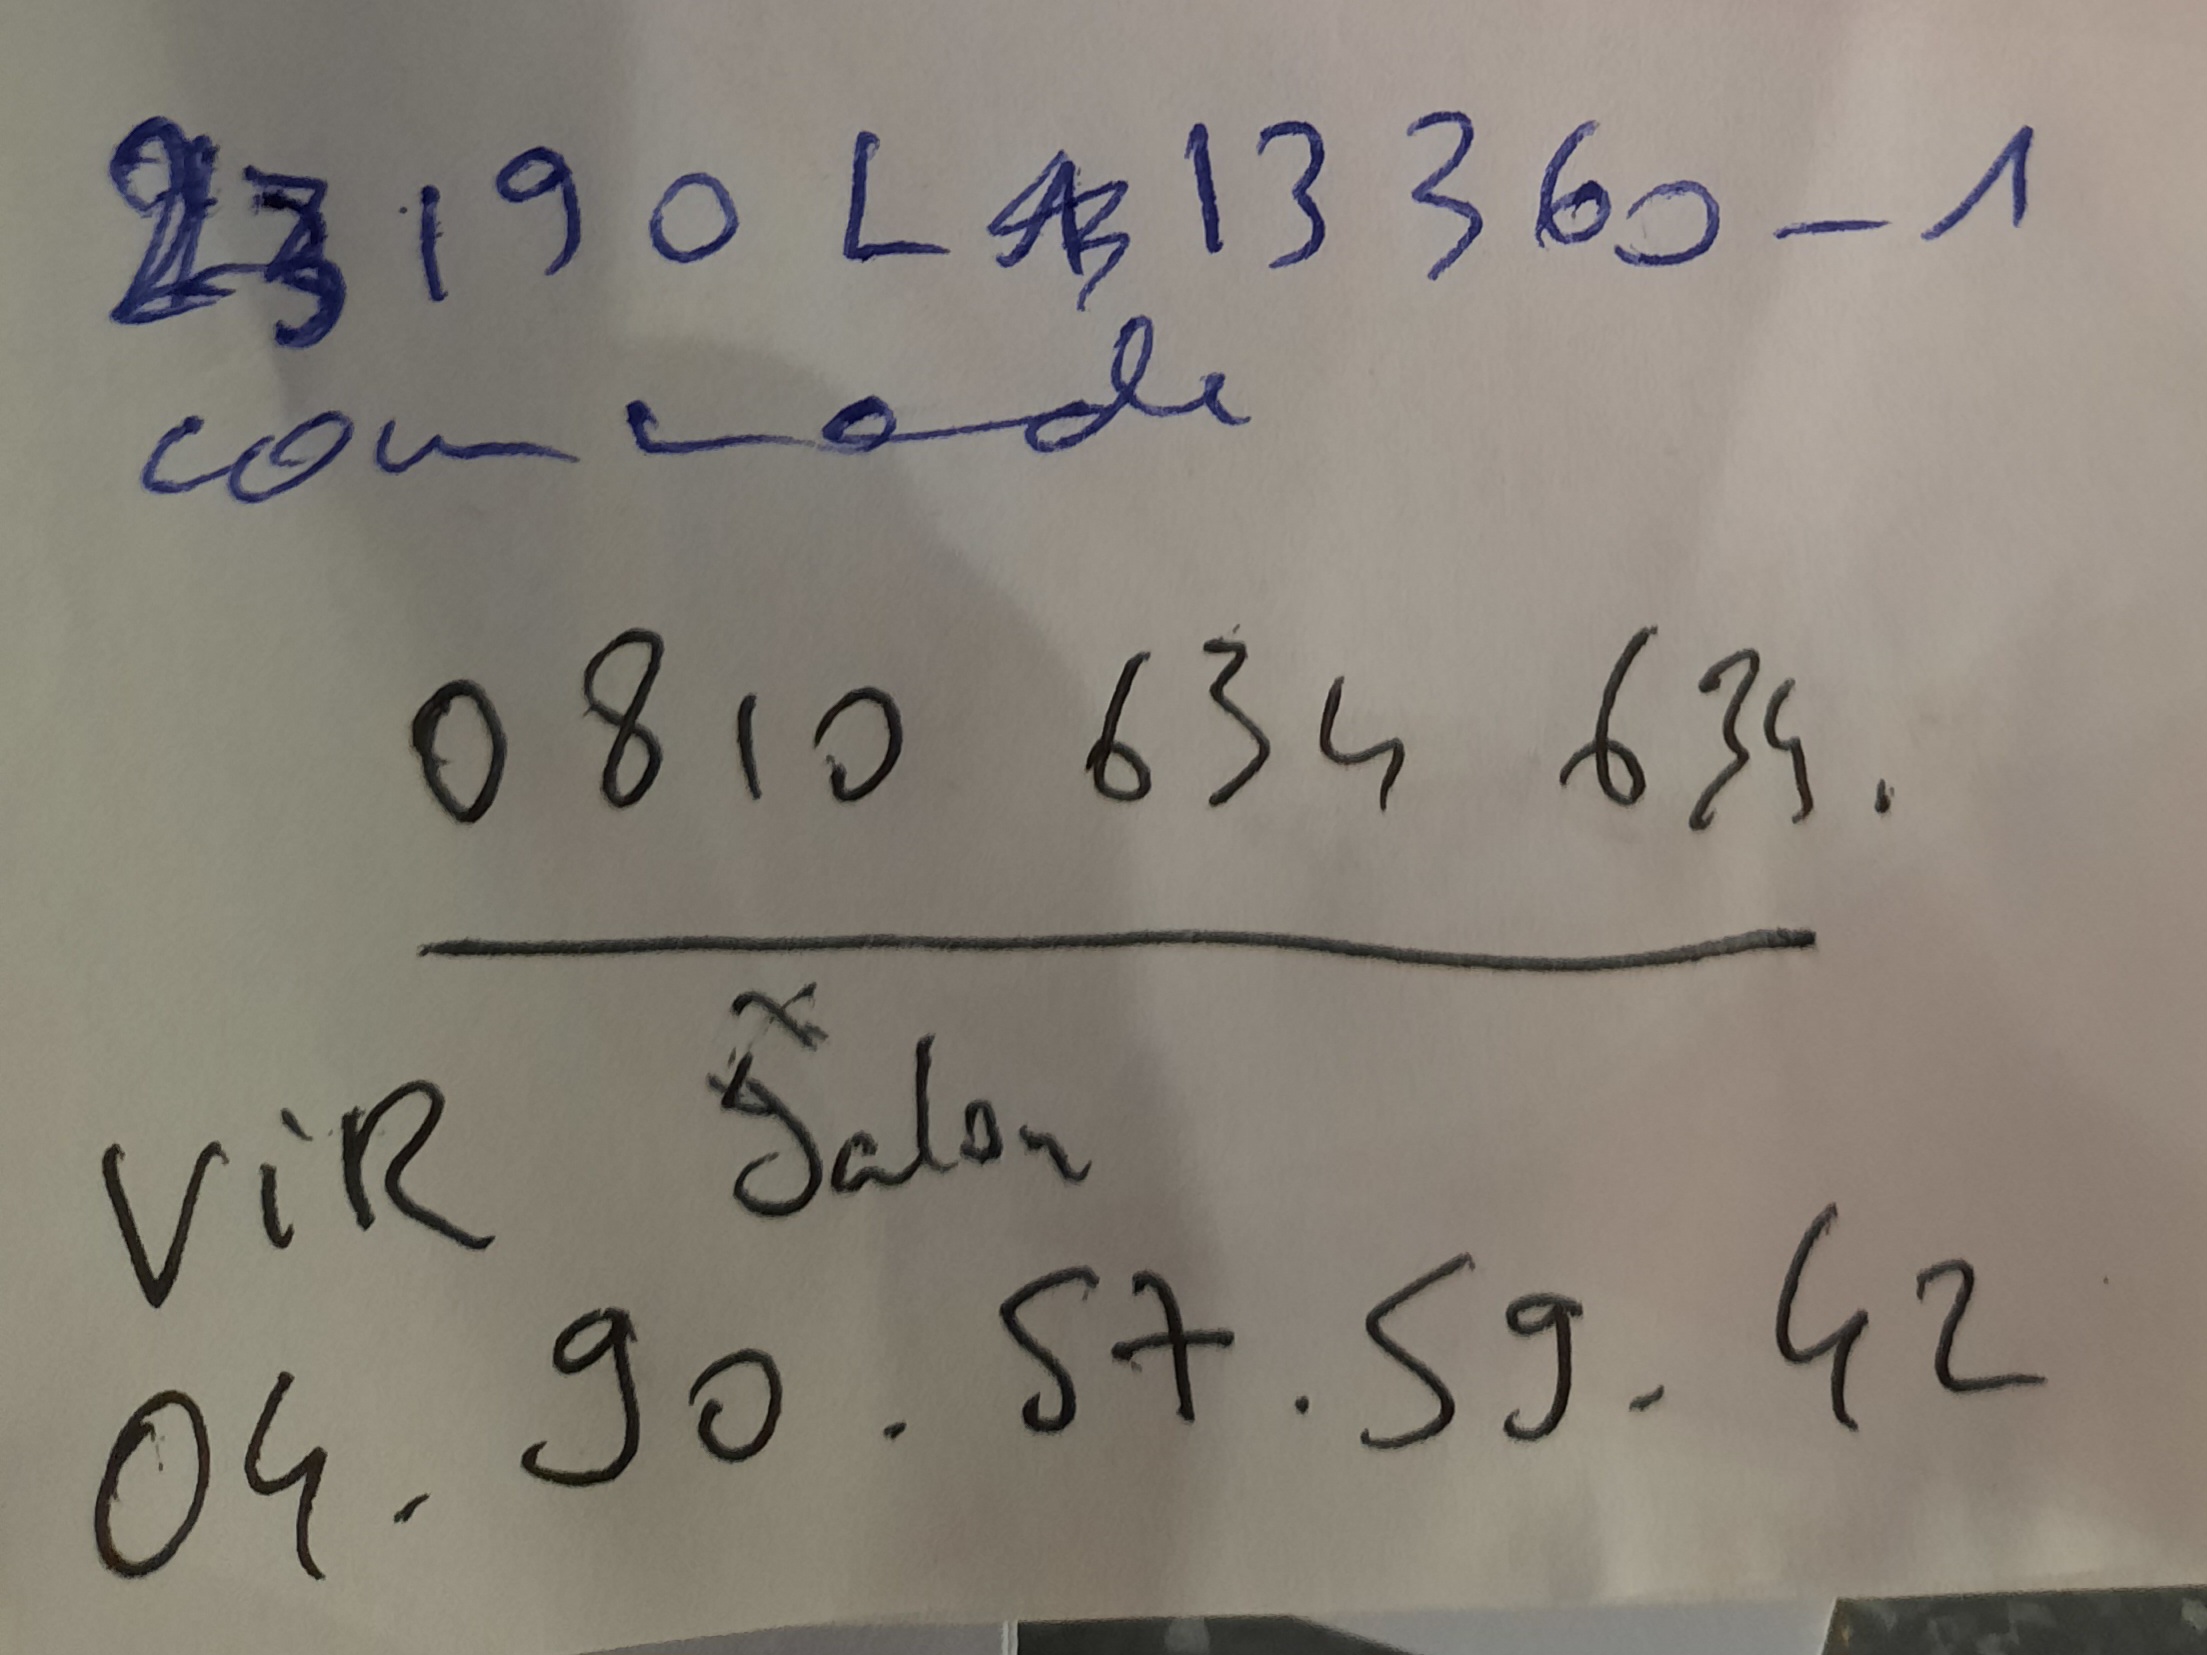 23190 L 13360-1
commande
0810 634 634.
ViR Salon
04. 90. 57. 59. 42